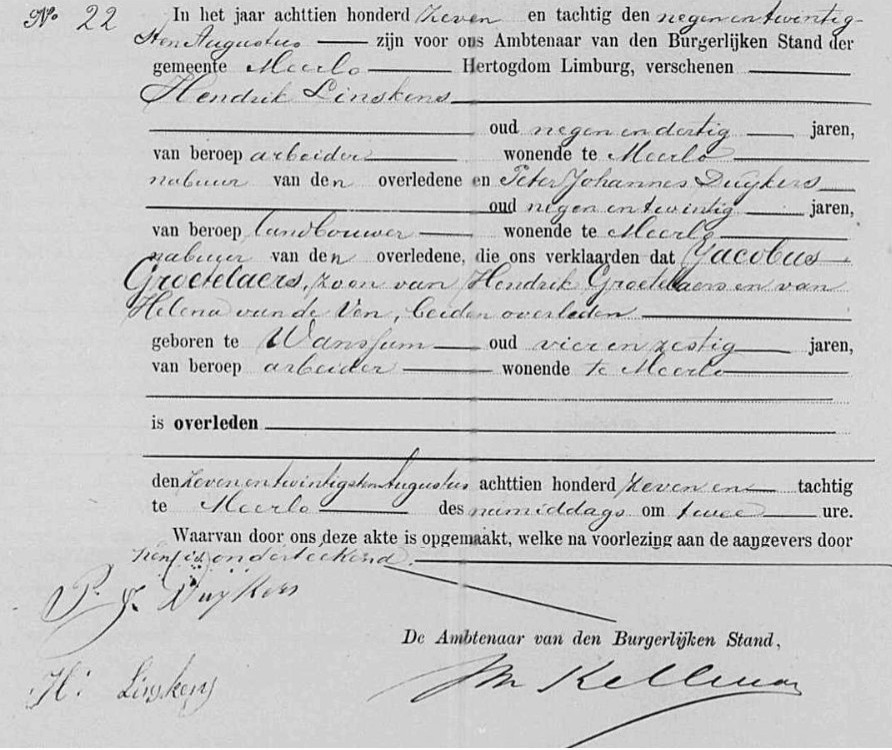 No 22 In het jaar achttien honderd zeven en tachtig den negen en twintig-
sten Augustus zijn voor ons Ambtenaar van den Burgerlijken Stand der
gemeente Meerlo Hertogdom Limburg, verschenen
Hendrik Linskens
oud negen en dertig jaren,
van beroep arbeider wonende te Meerlo
nabuur van den overledene en Peter Johannes Duijkers
oud negen en twintig jaren,
van beroep landbouwer wonende te Meerlo
nabuur van den overledene, die ons verklaarden dat Jacobus
Groetelaers, zoon van Hendrik Groetelaers en van
Helena van de Ven, beiden overleden
geboren te Wanssum oud vier en zestig jaren,
van beroep arbeider wonende te Meerlo
is overleden
den zeven en twintigsten Augustus achttien honderd zeven en tachtig
te Meerlo des namiddags om twee ure.
Waarvan door ons deze akte is opgemaakt, welke na voorlezing aan de aangevers door
hen is onderteekend.
P. J. Duijkers
De Ambtenaar van den Burgerlijken Stand,
H: Linskens